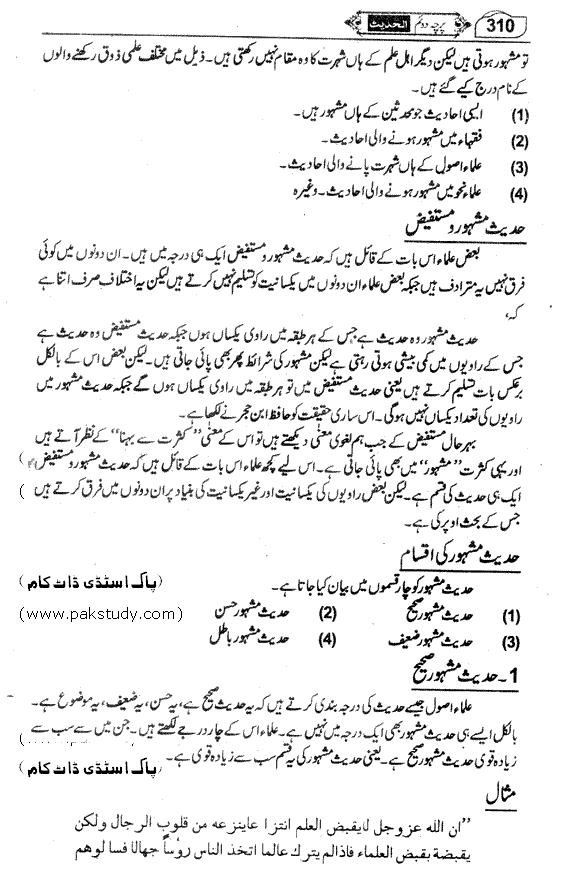 310 پرچہ دوئم الحدیث
تو مشہور ہوتی ہیں لیکن دیگر اہل علم کے ہاں شہرت کا وہ مقام نہیں رکھتی ہیں۔ ذیل میں مختلف علمی ذوق رکھنے والوں
کے نام درج کیے گئے ہیں۔
(1) ایسی احادیث جو محدثین کے ہاں مشہور ہیں۔
(2) فقہاء میں مشہور ہونے والی احادیث۔
(3) علماء اصول کے ہاں شہرت پانے والی احادیث۔
(4) علماء نحو میں مشہور ہونے والی احادیث۔ وغیرہ
حدیث مشہور و مستفیض
بعض علماء اس بات کے قائل ہیں کہ حدیث مشہور و مستفیض ایک ہی درجہ میں ہیں۔ ان دونوں میں کوئی
فرق نہیں یہ مترادف ہیں جبکہ بعض علماء ان دونوں میں یکسانیت کو تسلیم نہیں کرتے ہیں لیکن یہ اختلاف صرف اتنا ہے
کہ،
حدیث مشہور وہ حدیث ہے جس کے ہر طبقہ میں راوی یکساں ہوں جبکہ حدیث مستفیض وہ حدیث ہے
جس کے راویوں میں کمی بیشی ہوتی رہتی ہے لیکن مشہور کی شرائط پھر بھی پائی جاتی ہیں۔ لیکن بعض اس کے بالکل
برعکس بات تسلیم کرتے ہیں یعنی حدیث مستفیض میں تو ہر طبقہ میں راوی یکساں ہوں گے جبکہ حدیث مشہور میں
راویوں کی تعداد یکساں نہیں ہوگی۔ اس ساری حقیقت کو حافظ ابن حجر نے لکھا ہے۔
بہرحال مستفیض کے جب ہم لغوی معنٰی دیکھتے ہیں تو اس کے معنٰی ’’کثرت سے بہنا‘‘ کے نظر آتے ہیں
اور یہی کثرت ’’مشہور‘‘ میں بھی پائی جاتی ہے۔ اس لیے کچھ علماء اس بات کے قائل ہیں کہ حدیث مشہور و مستفیض
ایک ہی حدیث کی قسم ہے۔ لیکن بعض راویوں کی یکسانیت اور غیر یکسانیت کی بنیاد پر ان دونوں میں فرق کرتے ہیں
جس کے بحث اوپر کی ہے۔
حدیث مشہور کی اقسام
حدیث مشہور کو چار قسموں میں بیان کیا جاتا ہے۔ (پاک اسٹڈی ڈاٹ کام)
(1) حدیث مشہور صحیح (2) حدیث مشہور حسن (www.pakstudy.com)
(3) حدیث مشہور ضعیف (4) حدیث مشہور باطل
1۔ حدیث مشہور صحیح
علماء اصول جیسے حدیث کی درجہ بندی کرتے ہیں کہ یہ حدیث صحیح ہے، یہ حسن، یہ ضعیف، یہ موضوع ہے۔
بالکل ایسے ہی حدیث مشہور بھی ایک درجہ میں نہیں ہے۔ علماء اس کے چار درجے لکھتے ہیں۔ جن میں سے سب سے
زیادہ قوی حدیث مشہور صحیح ہے۔ یعنی حدیث مشہور کی یہ قسم سب سے زیادہ قوی ہے۔ (پاک اسٹڈی ڈاٹ کام)
مثال
’’ان الله عزوجل لايقبض العلم انتزا عاينزعه من قلوب الرجال ولكن
يقبضة بقبض العلماء فاذالم يترك عالما اتخذ الناس روًساً جهالا فسا لوهم